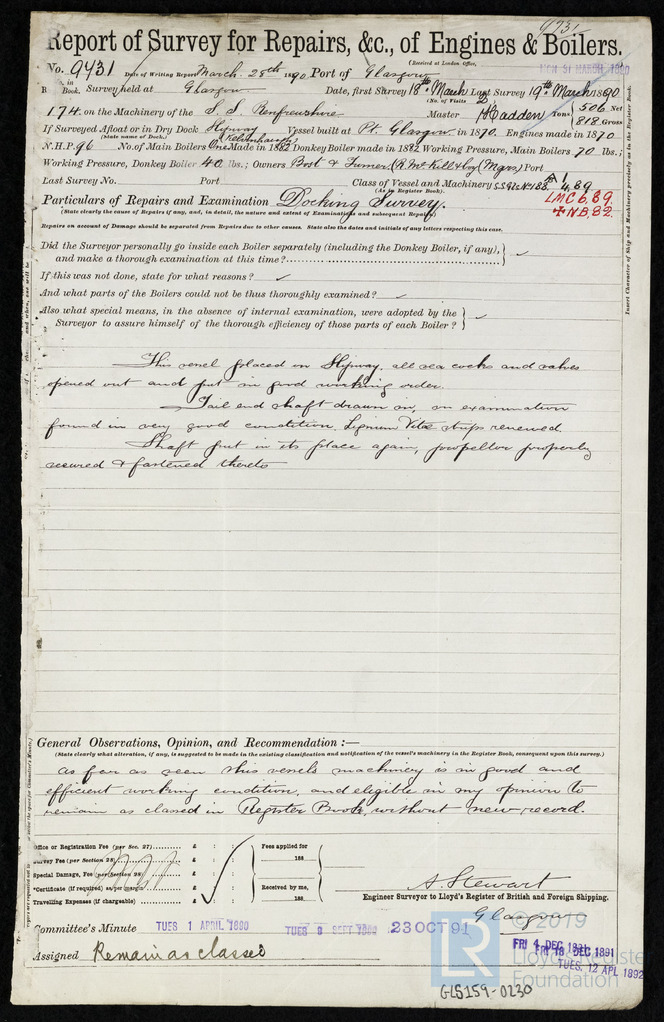 9731
Report of Survey for Repairs, &c., of Engines & Boilers.
(Received at London Office,
No. 9431 Date of Writing Report March 28th 1890 Port of Glasgow
MON 31 MARCH 1890
No. in R Book. Survey held at Glasgow Date, first Survey 18th March Last Survey 19th March 1890
(No. of Visits 2)
174 on the Machinery of the S. S. Renfrewshire Master Hadden Tons 506 Net
818 Gross
If Surveyed Afloat or in Dry Dock Slipway Vessel built at Pt. Glasgow in 1870. Engines made in 1870
(State name of Dock.) Kelvinhaugh
N.H.P. 96 No. of Main Boilers One Made in 1882 Donkey Boiler made in 1882 Working Pressure, Main Boilers 70 lbs.;
Working Pressure, Donkey Boiler 40 lbs.; Owners (R. McKill & Coy Mgrs) Port
Last Survey No. Port Class of Vessel and Machinery
(As in Register Book.)
A 1
4,89
Particulars of Repairs and Examination Docking Survey.
LMC 6,89.
NB,82.
(State clearly the cause of Repairs if any, and, in detail, the nature and extent of Examinations and subsequent Repairs)
Repairs on account of Damage should be separated from Repairs due to other causes. State also the dates and initials of any letters respecting this case.
Did the Surveyor personally go inside each Boiler separately (including the Donkey Boiler, if any),
and make a thorough examination at this time?
If this was not done, state for what reasons?
And what parts of the Boilers could not be thus thoroughly examined?
Also what special means, in the absence of internal examination, were adopted by the
Surveyor to assure himself of the thorough efficiency of those parts of each Boiler?
Insert Character of Ship and Machinery precisely as in the Register Book.
This vessel placed on Slipway, all sea cocks and valves
opened out and put in good working order.
Tail end shaft drawn in, on examination
found in very good condition, Lignum Vitæ strips renewed
Shaft put in its place again, propellor properly
secured & fastened thereto
General Observations, Opinion, and Recommendation :—
(State clearly what alteration, if any, is suggested to be made in the existing classification and notification of the vessel's machinery in the Register Book, consequent upon this survey.)
as far as seen this vessels machinery is in good and
efficient working condition, and eligible in my opinion to
remain as classed in Register Book, without new record.
Office or Registration Fee (per Sec. 27) £ : :
Survey Fee (per Section 28) £ : :
Special Damage, Fee (per Section 28) £ : :
*Certificate (if required) as per margin £ : :
Travelling Expenses (if chargeable) £ : :
Fees applied for
188
Received by me,
188
A. Stewart
Engineer Surveyor to Lloyd's Register of British and Foreign Shipping.
Glasgow
Committee's Minute TUES 1 APRIL 1890 TUES 9 SEPT 1890 23 OCT 91
FRI 4 DEC 1891
FRI 18 DEC 1891
TUES. 12 APL 1892
Assigned Remain as classed
© 2019
LR
Lloyd's Register
Foundation
GLS159-0230